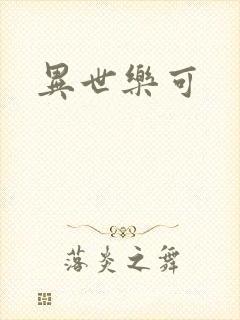 異世樂可
落炎之舞